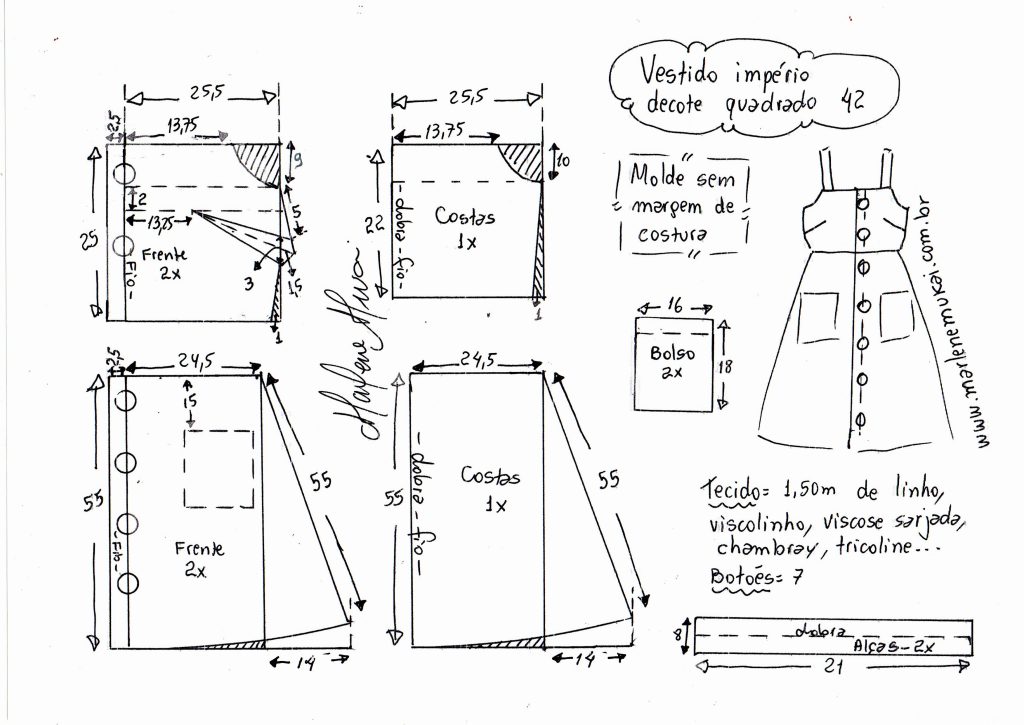 Vestido império
decote quadrado 42
Molde sem
margem de
costura
25,5
2,5
13,75
9
25
2
13,75
5
3
1,5
Frente
2x
- Fio -
1
25,5
13,75
10
22
- dobra - fio -
Costas
1x
1
www.marlenemukai.com.br
16
Bolso
2x
18
24,5
2,5
15
55
55
- Fio -
Frente
2x
14
24,5
55
- dobra - fio -
Costas
1x
55
14
Tecido = 1,50m de linho,
viscolinho, viscose sarjada,
chambray, tricoline...
Botões = 7
8
dobra
Alças - 2x
21